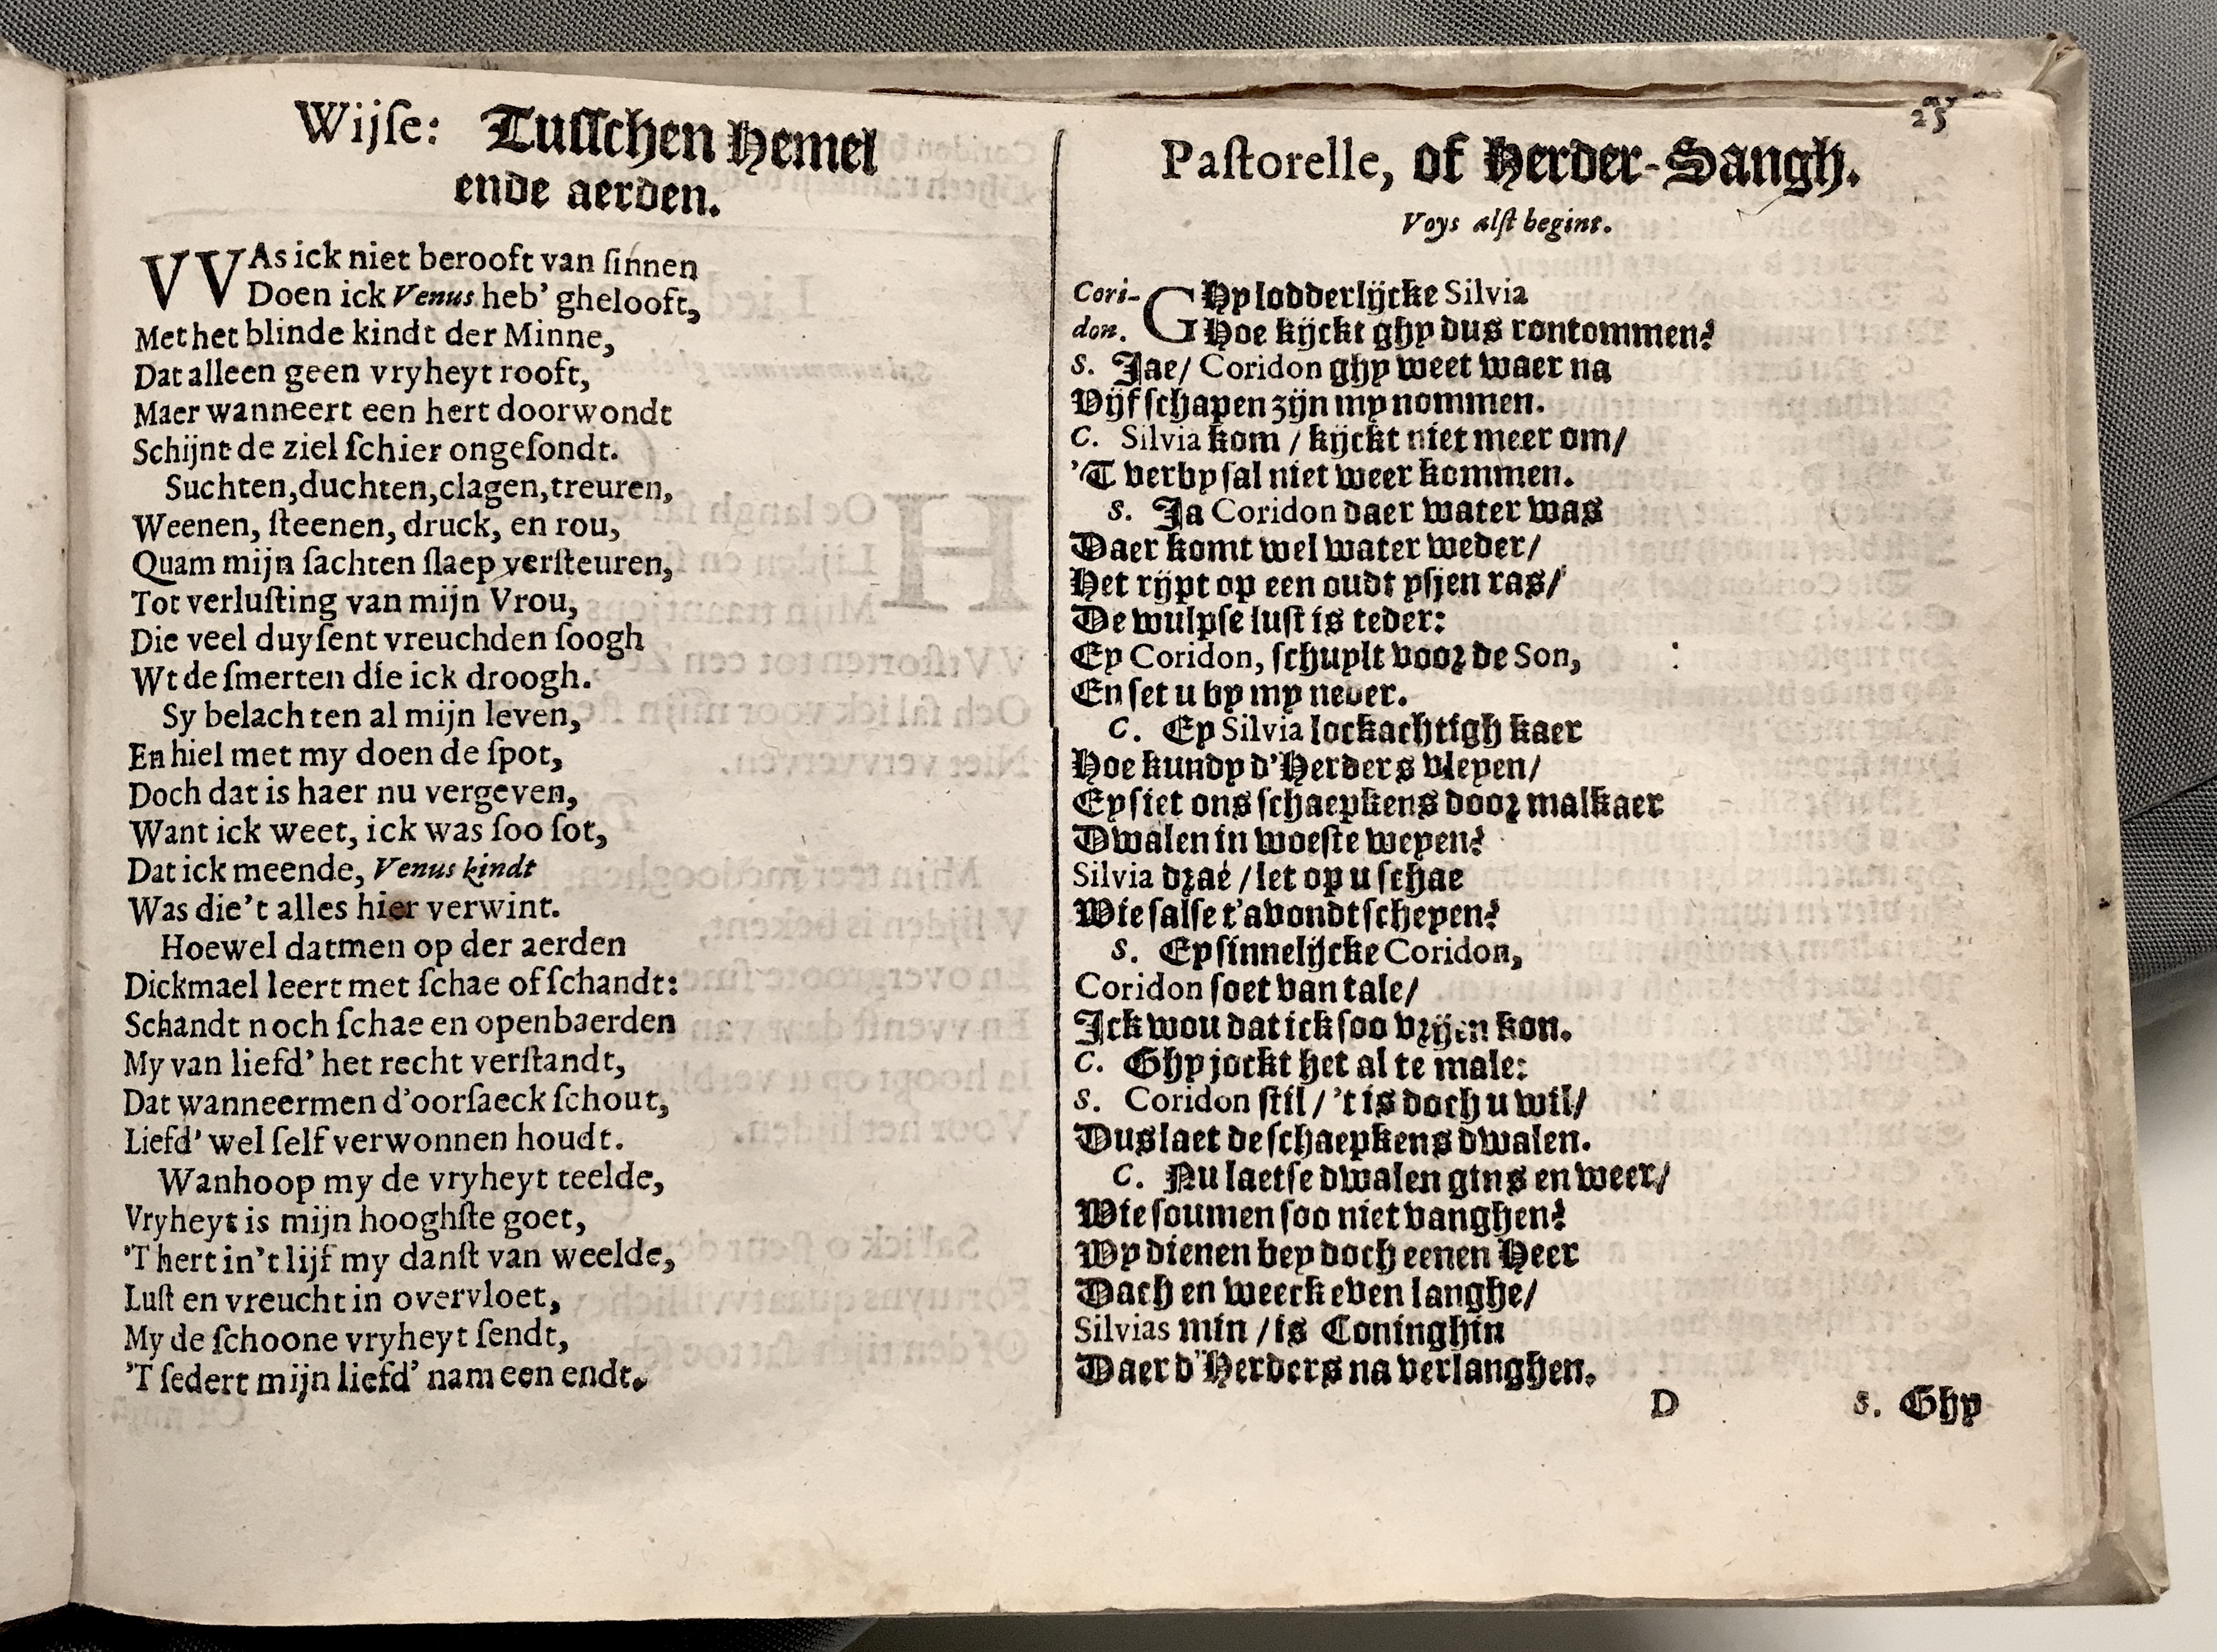 Wijſe: Tuſſchen Hemel
ende aerden.
VVAs ick niet berooft van ſinnen
Doen ick Venus heb' ghelooft,
Met het blinde kindt der Minne,
Dat alleen geen vryheyt rooft,
Maer wanneert een hert doorwondt
Schijnt de ziel ſchier ongeſondt.
Suchten, duchten, clagen, treuren,
Weenen, ſteenen, druck, en rou,
Quam mijn ſachten ſlaep verſteuren,
Tot verluſting van mijn Vrou,
Die veel duyſent vreuchden ſoogh
Wt de ſmerten die ick droogh.
Sy belachten al mijn leven,
En hiel met my doen de ſpot,
Doch dat is haer nu vergeven,
Want ick weet, ick was ſoo ſot,
Dat ick meende, Venus kindt
Was die't alles hier verwint.
Hoewel datmen op der aerden
Dickmael leert met ſchae of ſchandt:
Schandt noch ſchae en openbaerden
My van liefd' het recht verſtandt,
Dat wanneermen d'oorſaeck ſchout,
Liefd' wel ſelf verwonnen houdt.
Wanhoop my de vryheyt teelde,
Vryheyt is mijn hooghſte goet,
'T hert in't lijf my danſt van weelde,
Luſt en vreucht in overvloet,
My de ſchoone vryheyt ſendt,
'T ſedert mijn liefd' nam een endt.
25
Paſtorelle, of Herder-Sangh.
Voys alſt begint.
Cori- GHy lodderlijcke Silvia
don. Hoe kijckt ghy dus rontommen?
S. Jae/ Coridon ghy weet waer na
Vijf ſchapen zijn my nommen.
C. Silvia kom / kijckt niet meer om/
'T verby ſal niet weer kommen.
S. Ja Coridon daer water was
Daer komt wel water weder/
Het rijpt op een oudt ysjen ras/
De wulpſe luſt is teder:
Ey Coridon, ſchuylt voor de Son,
En ſet u by my neder.
C. Ey Silvia lockachtigh kaer
Hoe kundy d'Herders vleyen/
Ey ſiet ons ſchaepkens door malkaer
Dwalen in woeſte weyen?
Silvia drae / let op u ſchae
Wie ſalſe t'avondt ſcheyen?
S. Ey ſinnelijcke Coridon,
Coridon ſoet van tale/
Ick wou dat ick ſoo vrijen kon.
C. Ghy jockt het al te male:
S. Coridon ſtil / 't is doch u wil/
Dus laet de ſchaepkens dwalen.
C. Nu laetſe dwalen gins en weer/
Wie ſoumen ſoo niet vanghen?
Wy dienen bey doch eenen Heer
Dach en weeck even langhe/
Silvias min / is Coninghin
Daer d'Herders na verlanghen.
D S. Ghy